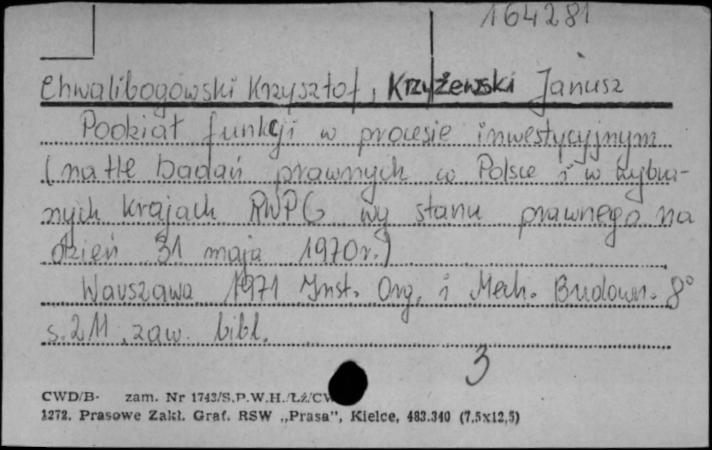 164281
Chwalibogowski Krzysztof, Krzyżewski Janusz
Podział funkcji w procesie inwestycyjnym
(na tle badań prawnych w Polsce i w wybra-
nych krajach RWPG wg stanu prawnego na
dzień 31 maja 1970r.)
Warszawa 1971 Inst. Org. i Mech. Budown. 8°
s. 211, zaw. bibl.
3
CWD/B- zam. Nr 1743/S.P.W.H./Łź/CW
1272. Prasowe Zakł. Graf. RSW „Prasa”, Kielce, 483.340 (7,5x12,5)